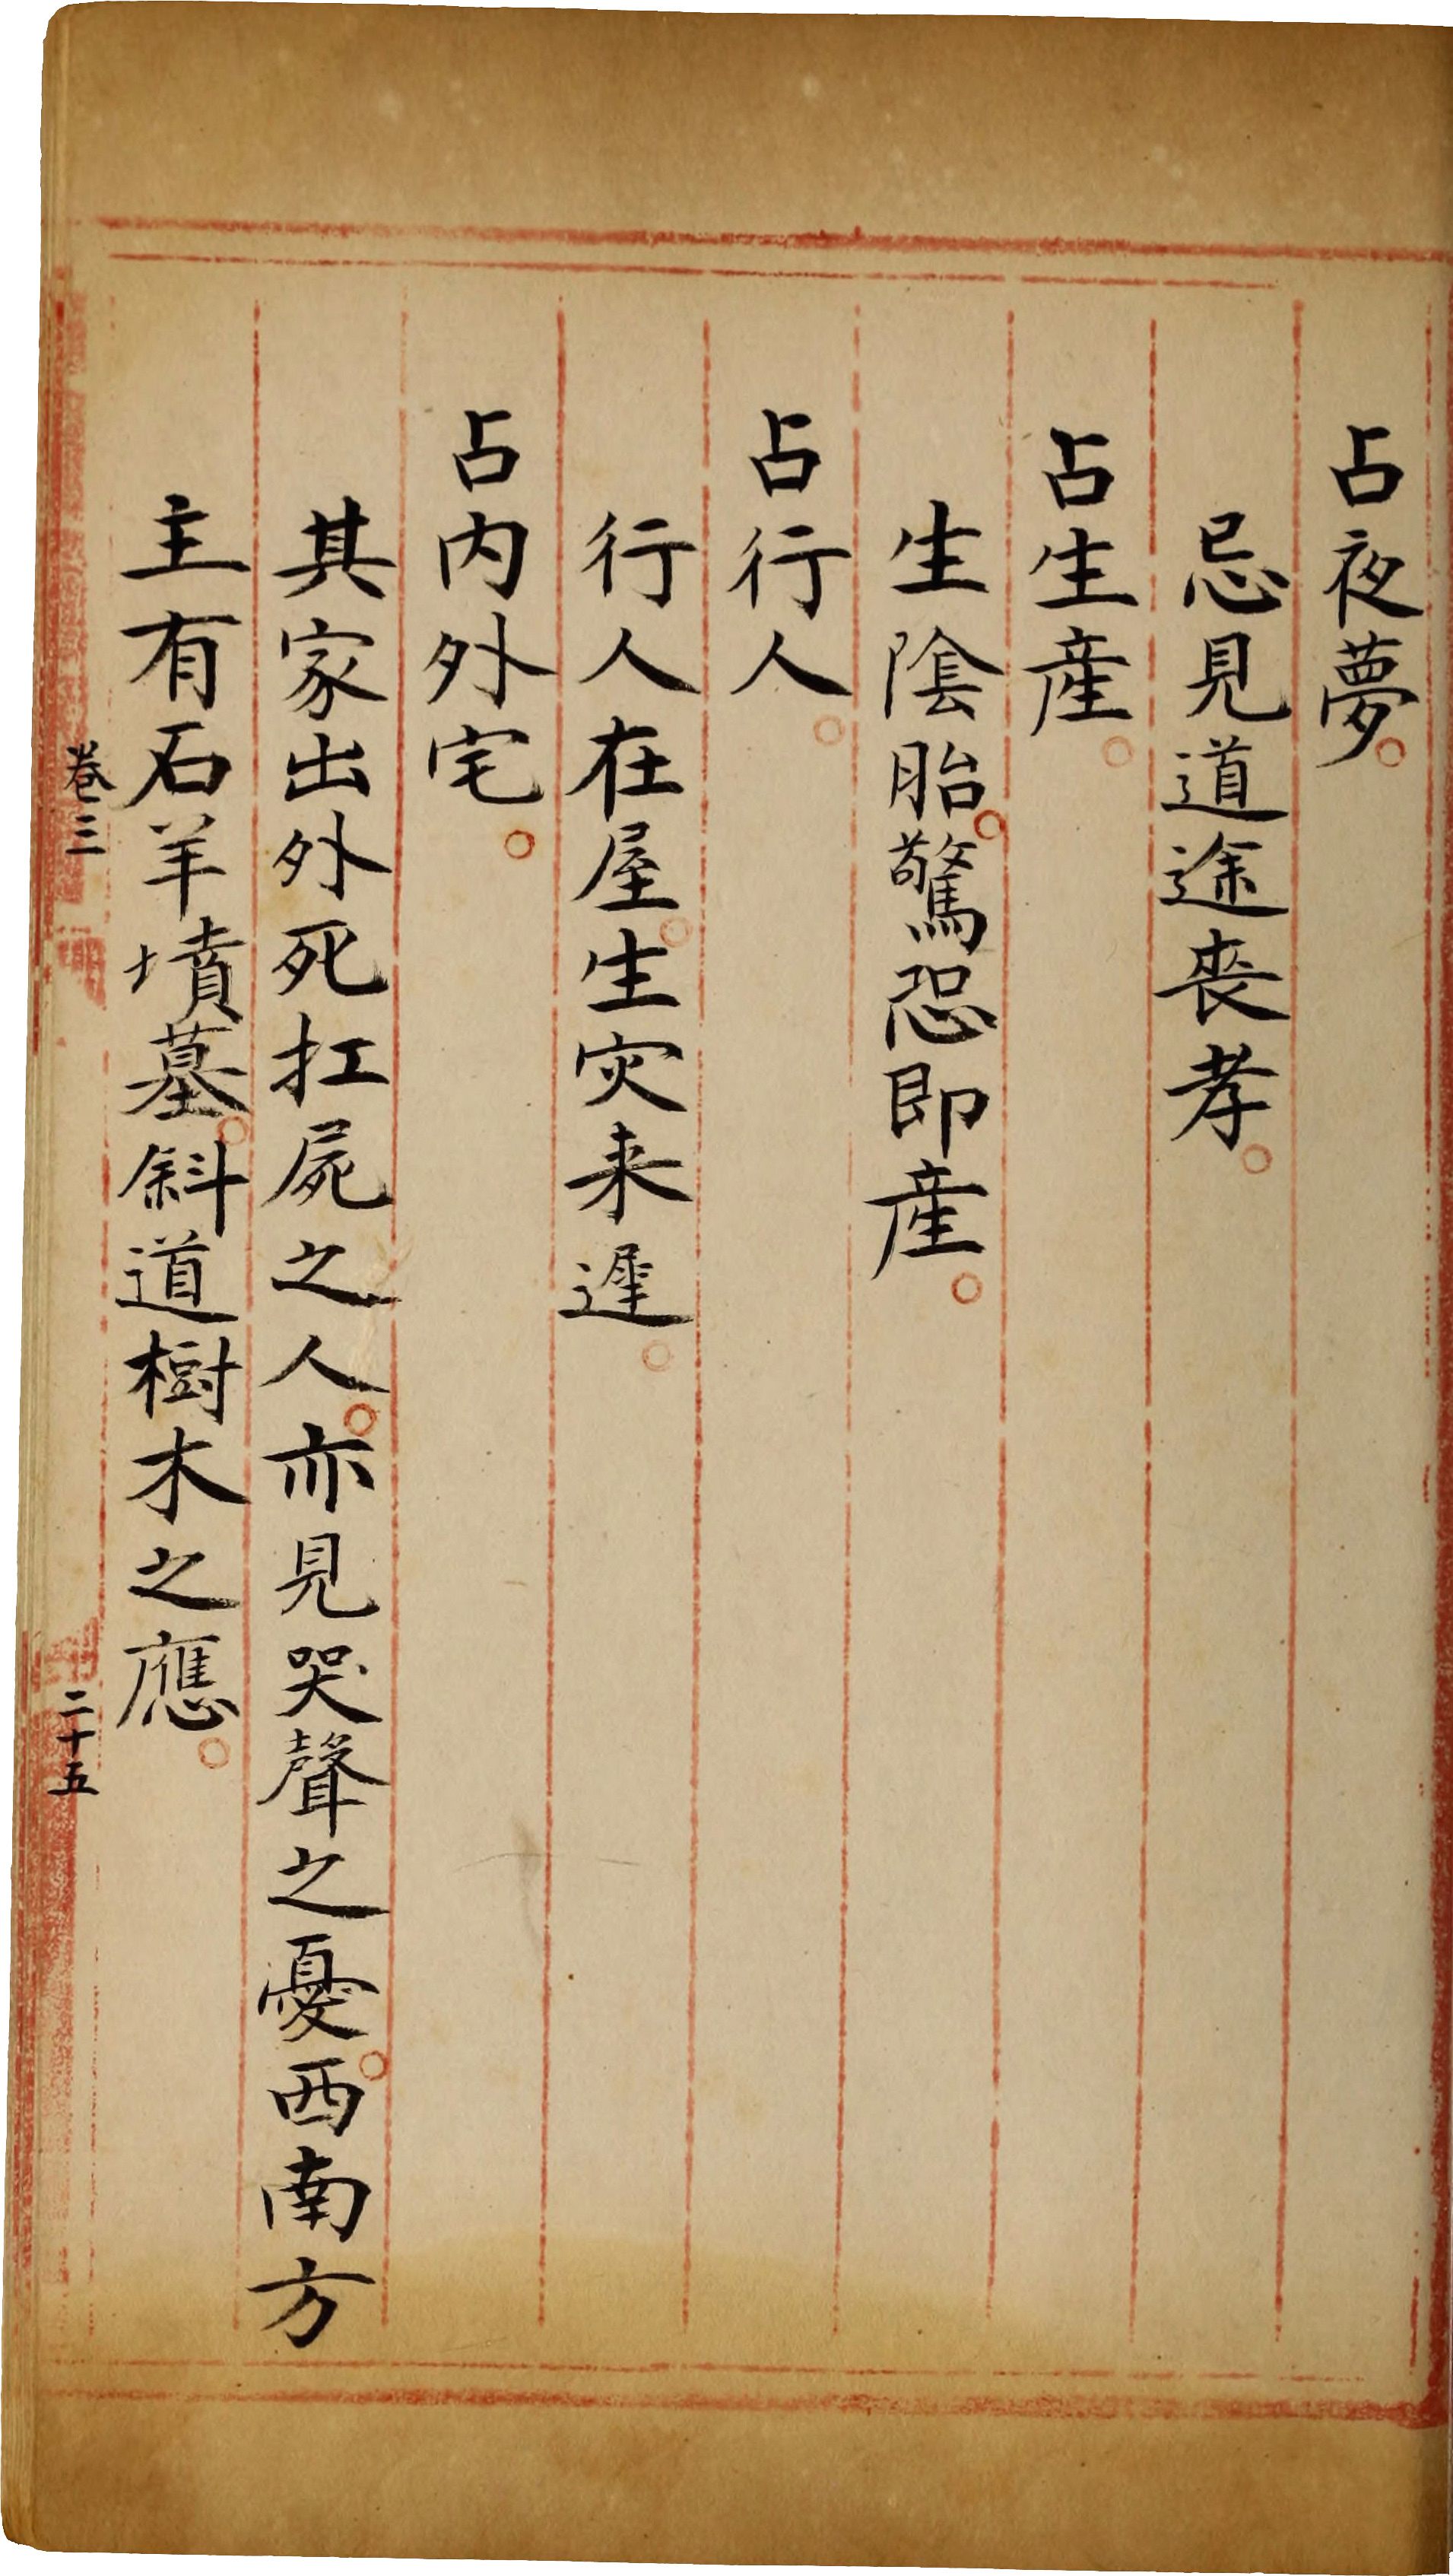 占夜夢。
忌見道途喪孝。
占生產。
生陰胎。驚恐即產。
占行人。
行人在屋。生灾来遲。
占内外宅。
其家出外死扛屍之人。亦見哭聲之憂。西南方
主有石羊墳墓。斜道樹木之應。
卷三
二十五